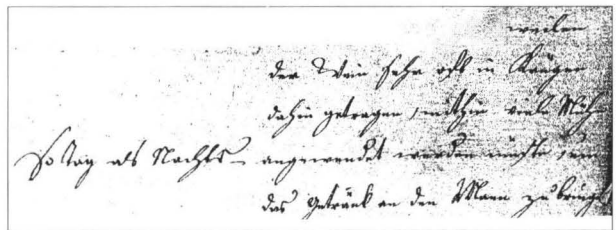 weilen
der Wein sehr oft in Krügen
dahin getragen, mithin viele Müh
so Tag als Nachts angewendet werden müste, um
das Getränk an den Mann zu bringen